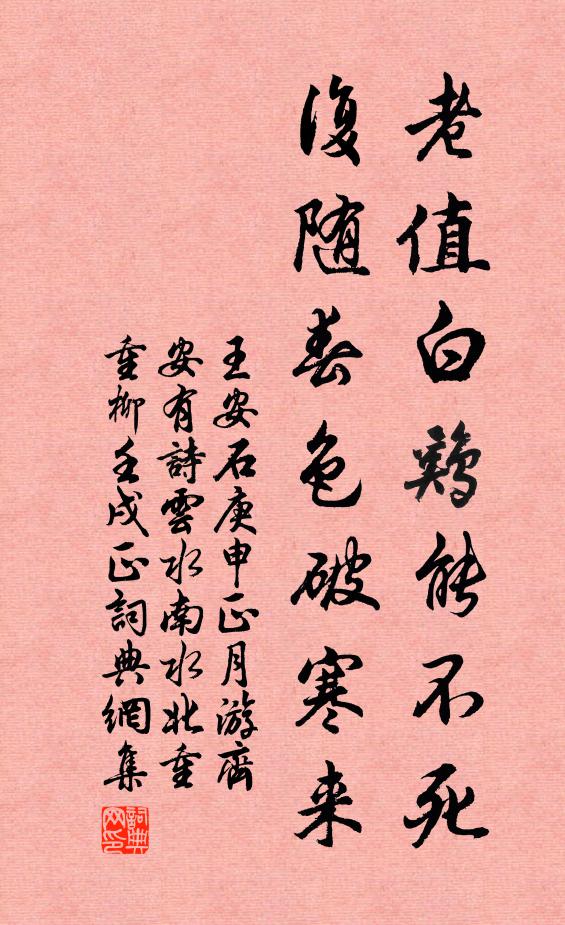 老值白鷄能不死
復随春色破寒来
王安石庚申正月游齊
安有詩雲水南水北重
重柳壬戌正詞典網集
詞典网印